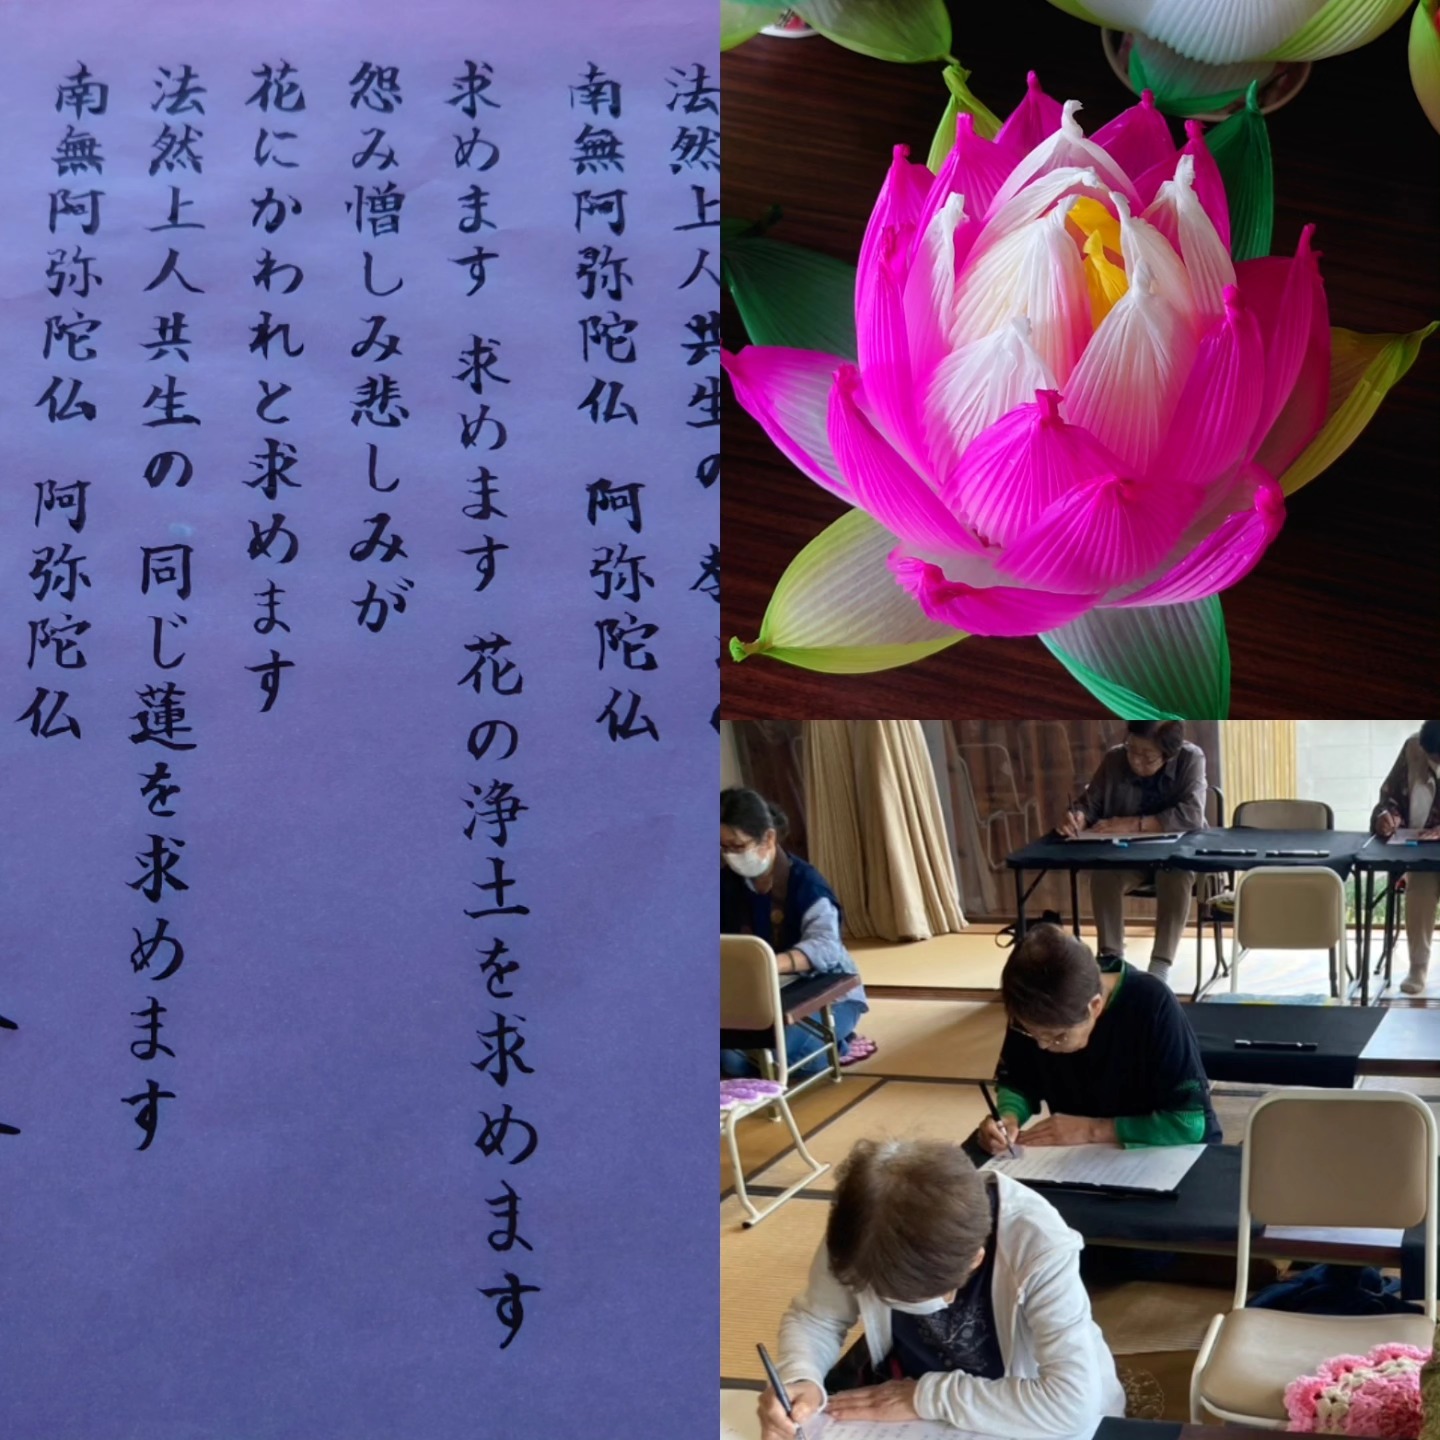 法然上人共生の
南無阿弥陀仏 阿弥陀仏
求めます 求めます 花の浄土を求めます
怨み憎しみ悲しみが
花にかわれと求めます
法然上人共生の 同じ蓮を求めます
南無阿弥陀仏 阿弥陀仏